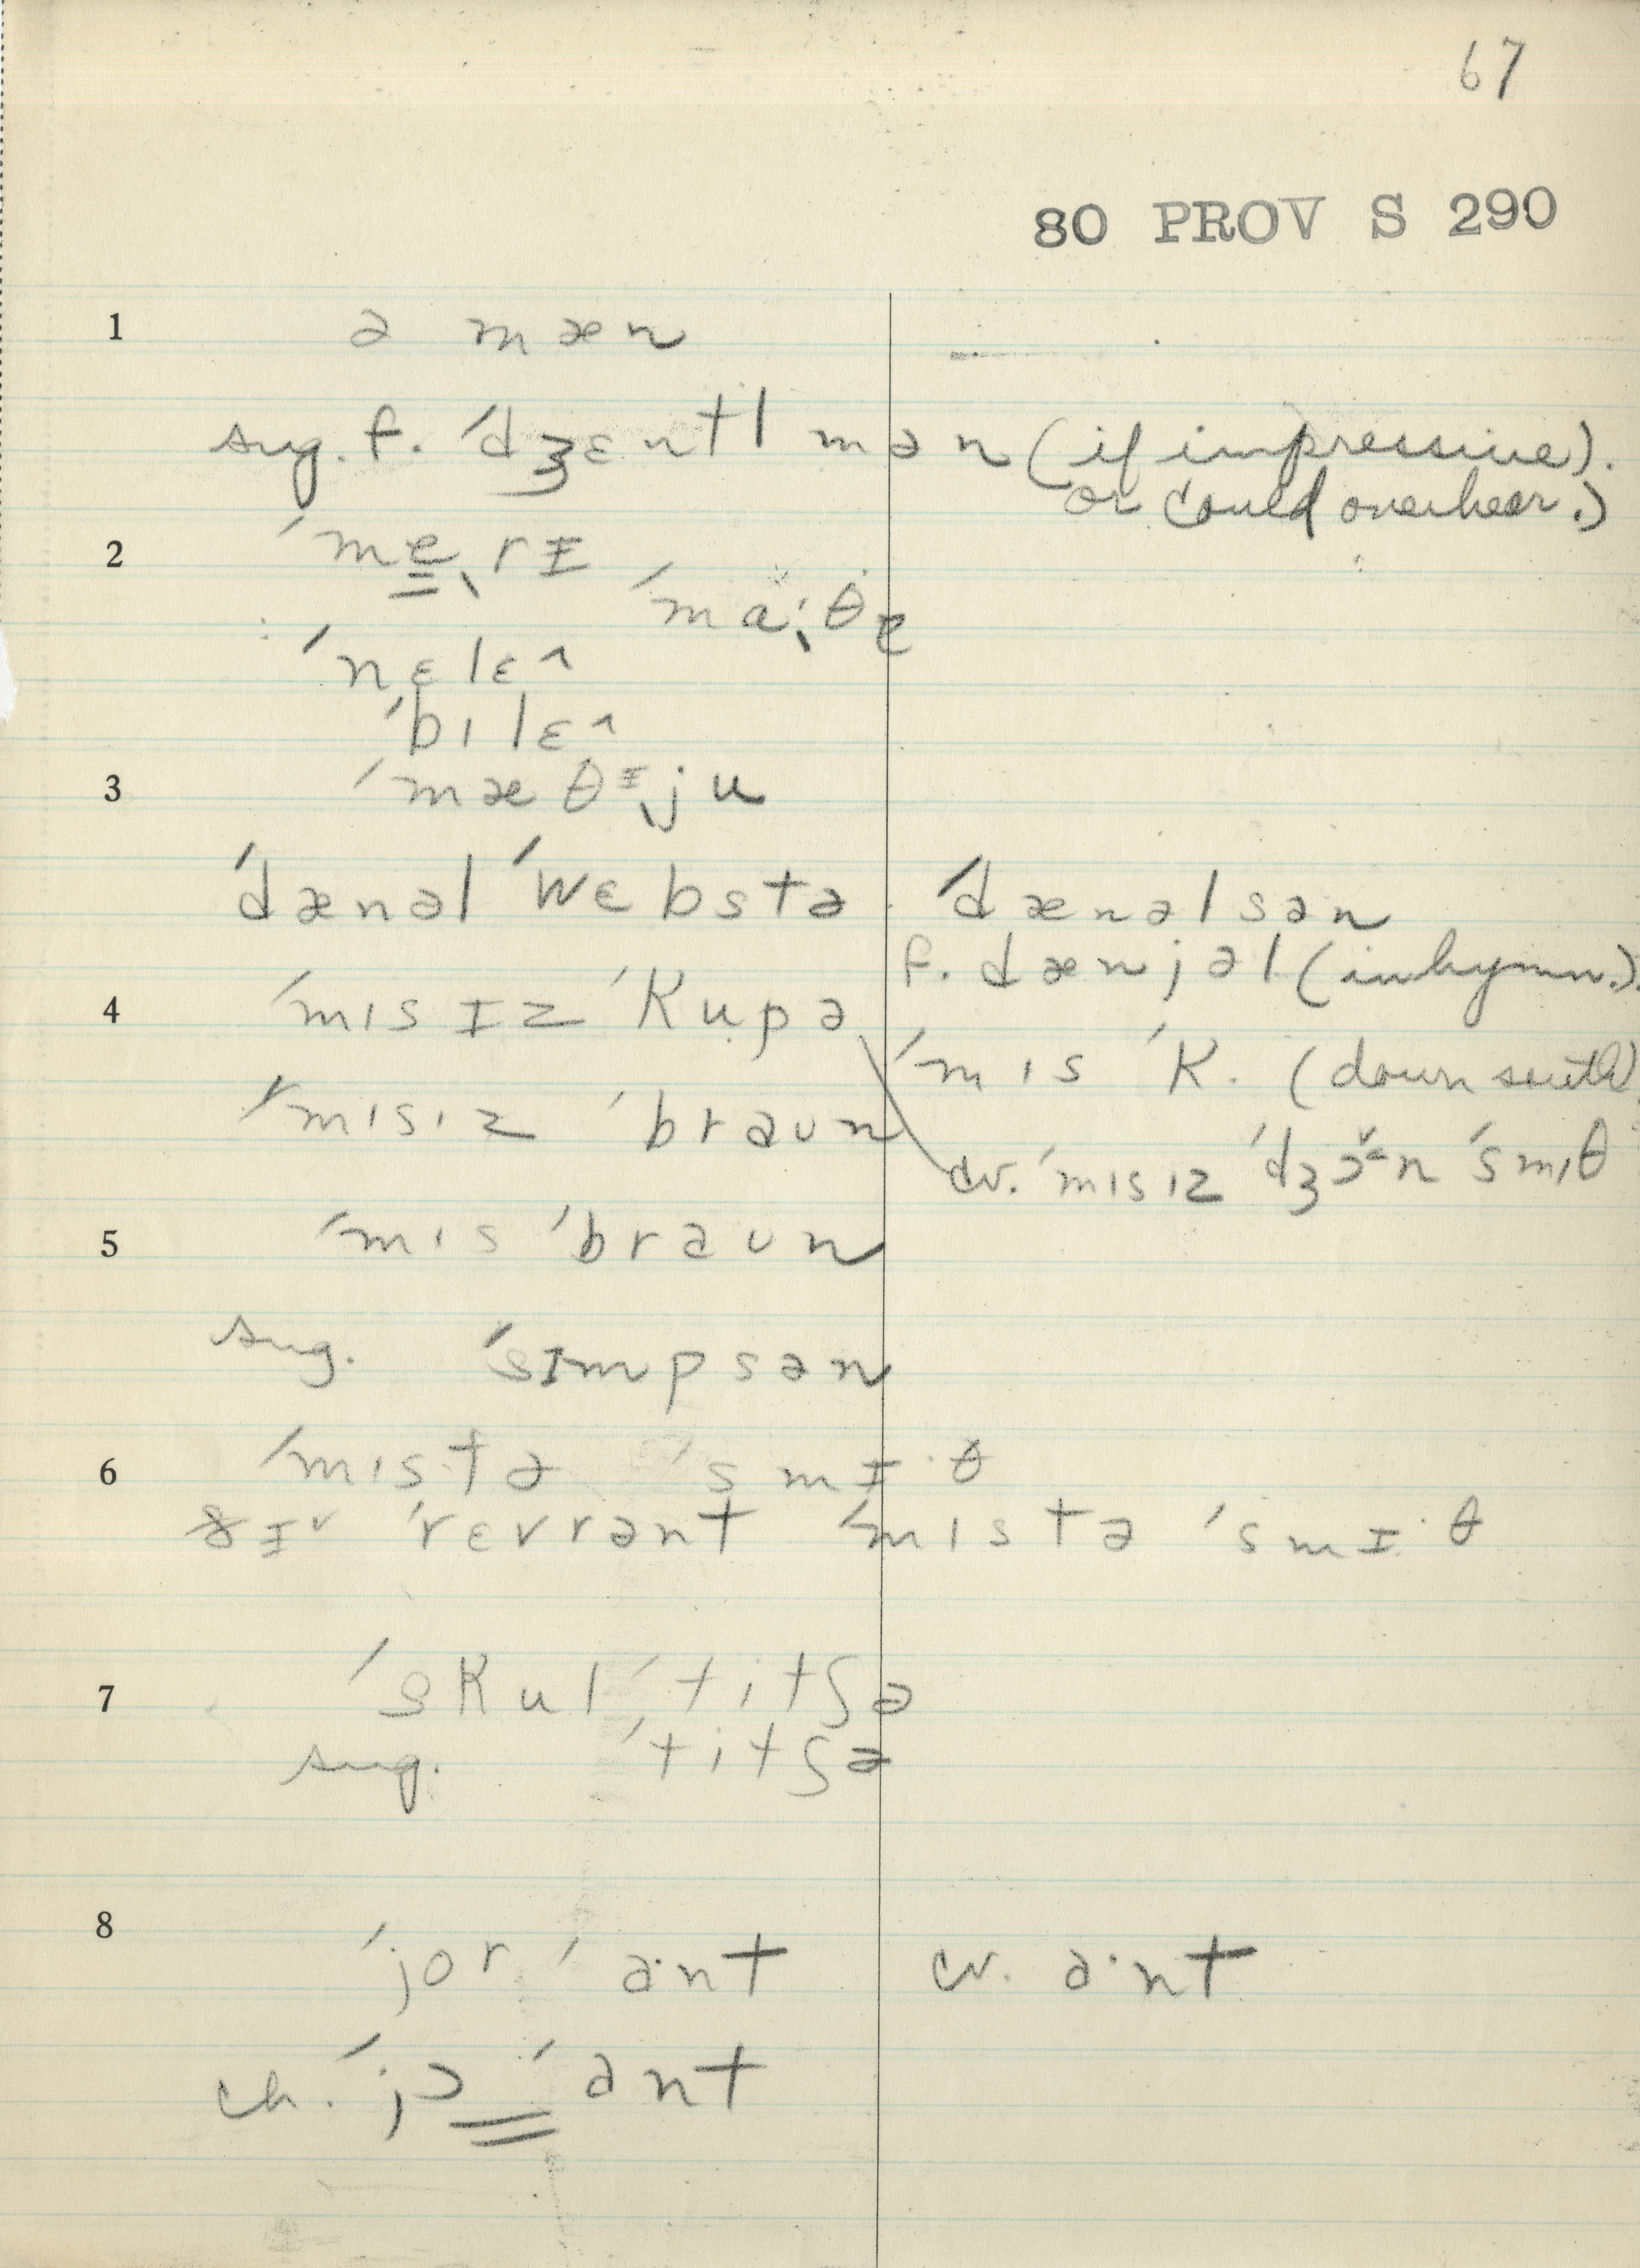 67
80 PROV S 290
1 ə mæn
sug. f. ˈdʒɛntl mən (if impressive).
or could overhear.)
2 ˈme̳ˎrɪ
ˈmaˎ·θɐ
ˈnɛlɛ^
ˈbɪlɛ^
3 ˈmæθɪˎju
ˈdænəl ˈwɛbstə ˈdænəlsən
f. dænjəl (in hymn.)
4 ˈmɪsɪz ˈkupə ˈmɪs ˈK. (down south)
ˈmɪsɪz ˈbraʊn
cv. ˈmɪsɪz ˈdʒɔn ˈsmɪθ
5 ˈmɪs ˈbraʊn
sug. ˈsɪmpsən
6 ˈmɪstə ˈsmɪ·θ
ðɪˇ ˈrɛvrənt ˈmɪstə ˈsmɪ·θ
7 ˈskul ˈtitʃə
sug. ˈtitʃə
8 ˈjor ˈa·nt cv. a·nt
ch. ˈjɔ ˈant